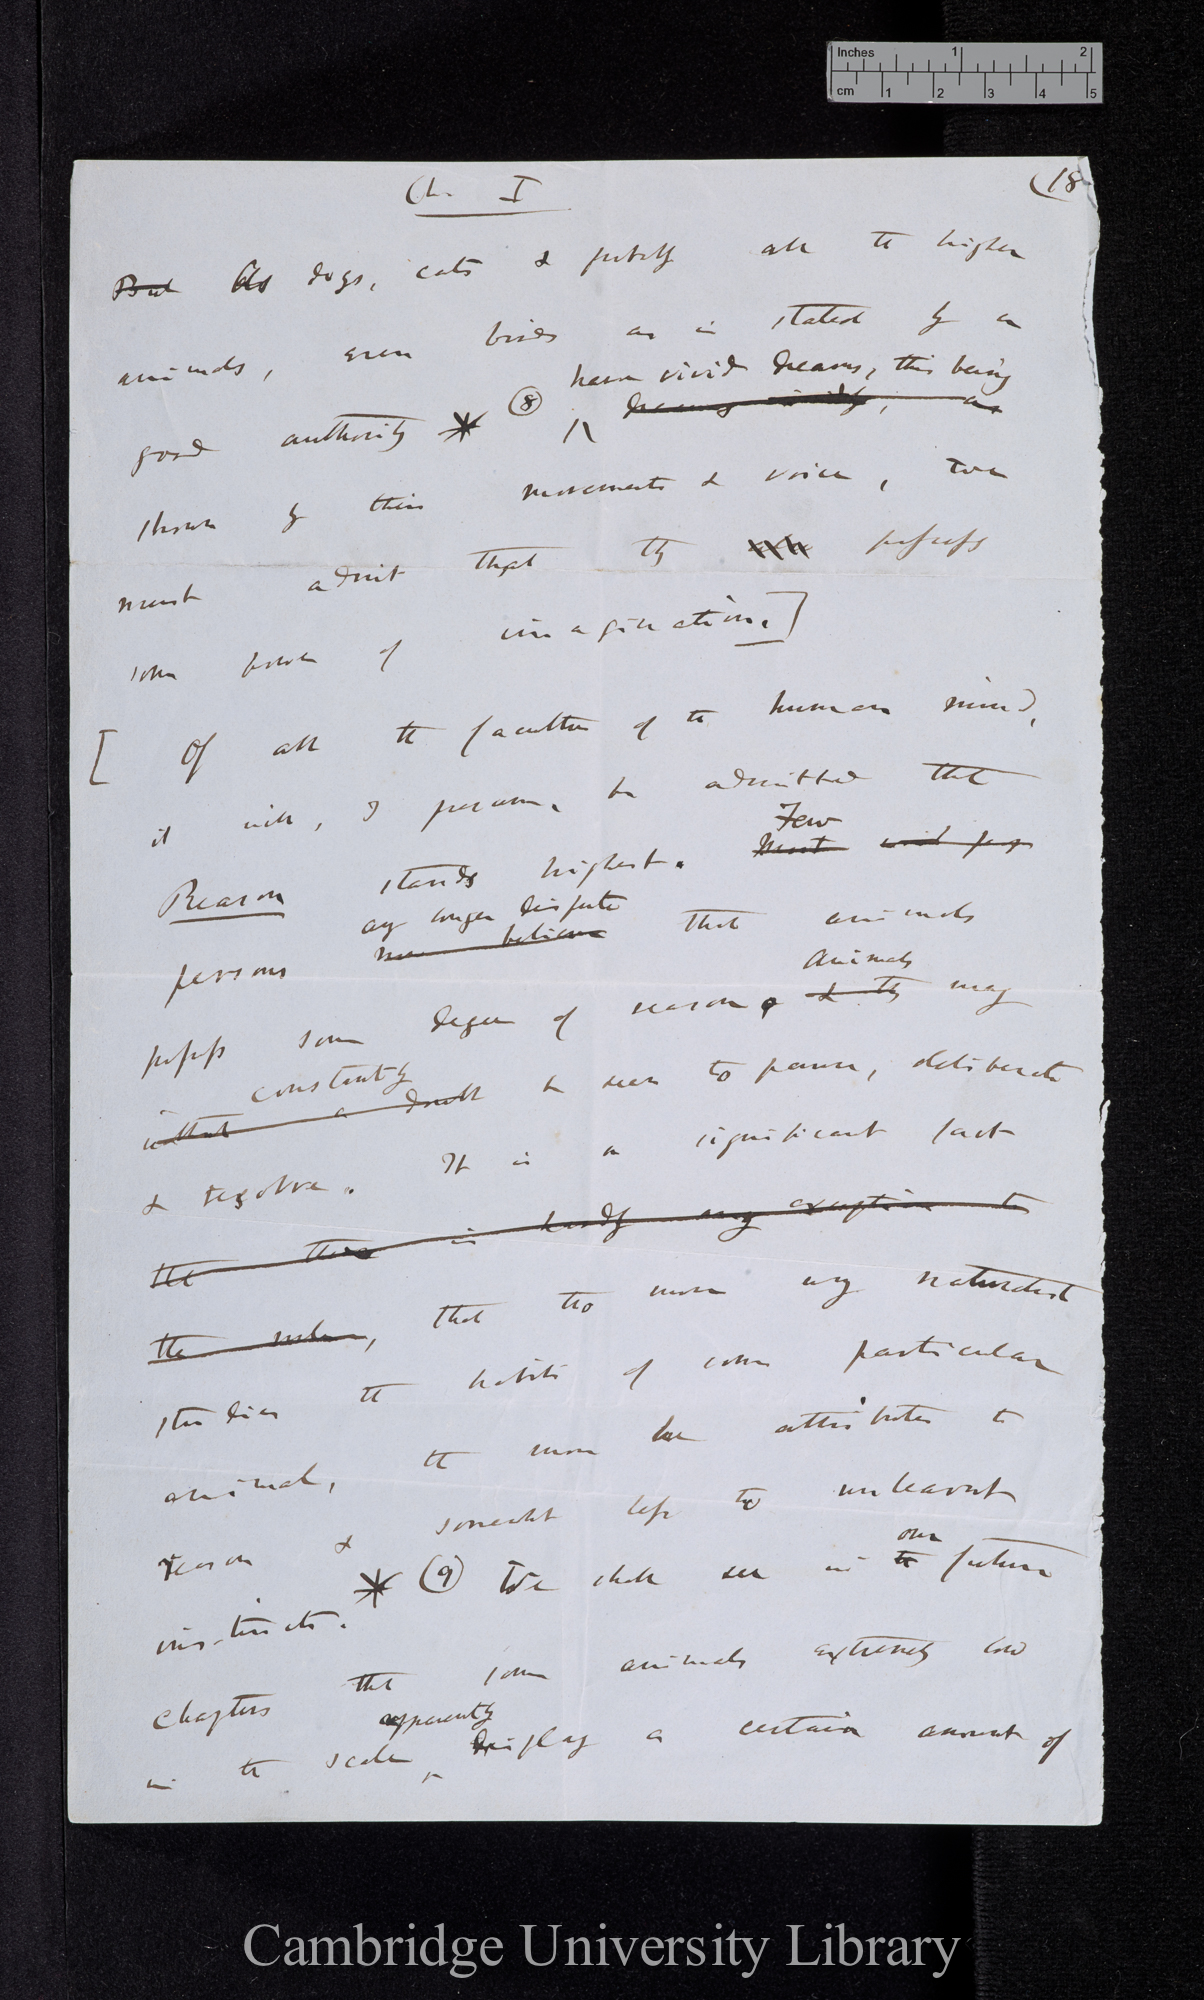 Inches 1 2
cm 1 2 3 4 5
Ch. I
(18
But As dogs, cats & probably all the higher
animals, even birds as is stated by an
have vivid dreams, this being
good authority * (8) /\ dreams vividly, as
shown by their movements & voice, we
must admit that they possess
some power of imagination.]
[ Of all the faculties of the human mind,
it will, I presume, be admitted that
Few
Reason stands highest. Most will perhaps
any longer dispute
persons now believe that animals
Animals
possess some degree of reason. & they may
constantly
without a doubt be seen to pause, deliberate
& resolve. It is a significant fact
that there is hardly any exception to
the rule, that the more any naturalist
studies the habits of some particular
animal, the more he attributes to
reason & somewhat less to unlearnt
our
instincts. * (9) We shall see in the future
chapters that some animals extremely low
apparently
in the scale ^ display a certain amount of
Cambridge University Library